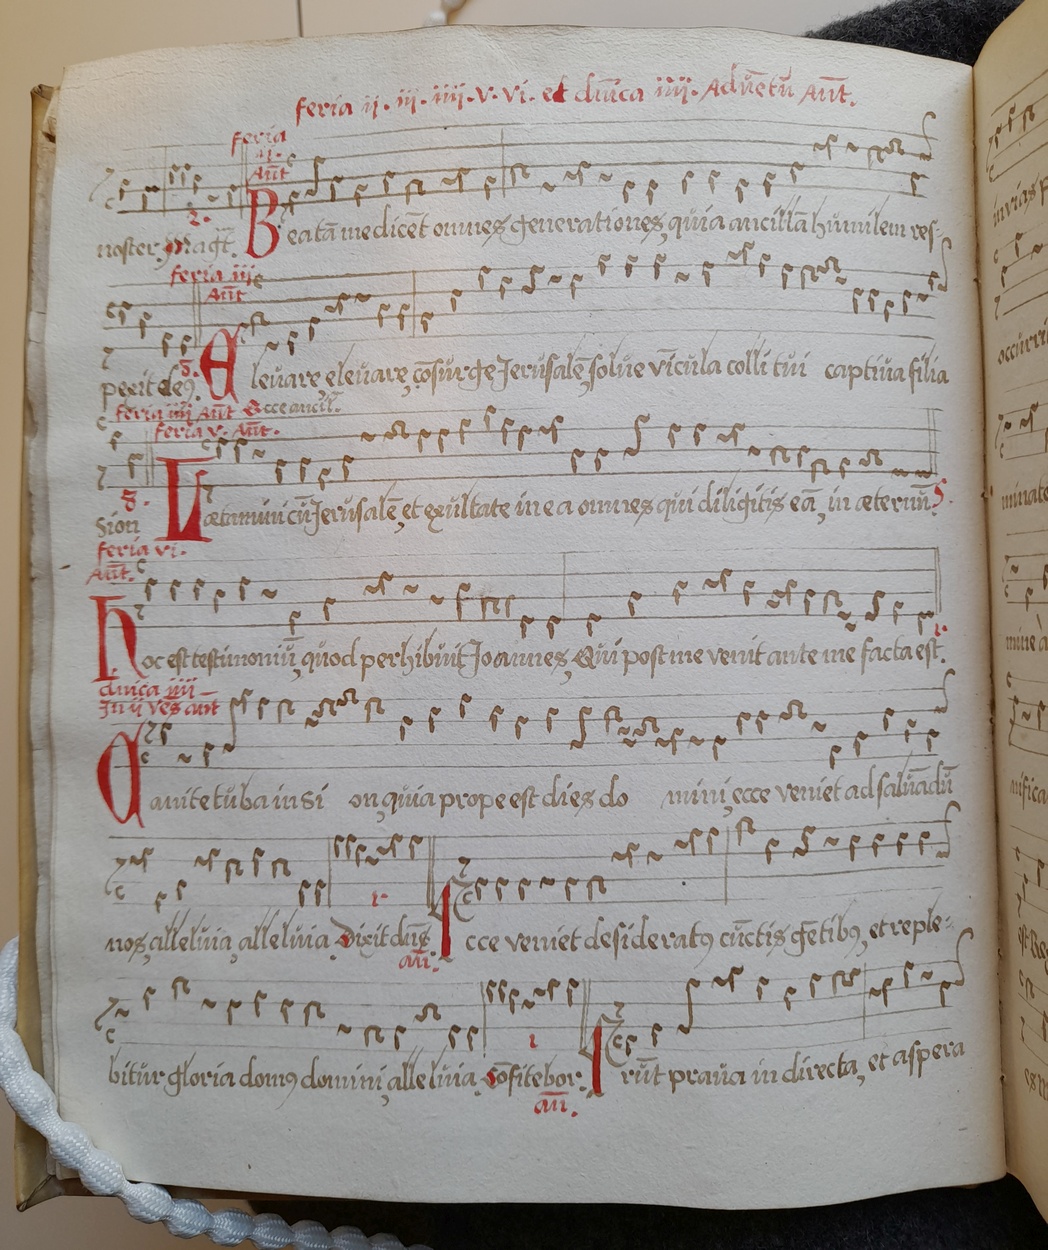 feria ij. iij. iiij. v. vi. et dnīca iiij. Advētū Ant̄.
feria
ij.
Ant̄
noster, Magt̄. 2. Beatā me dicēt omnes generationes, quia ancillā humilem res-
feria iij
Ant̄
pexit deꝰ. 8. Elevare elevare, cōsurge Jerusalē, solve vīcula colli tui captiva filia
feria iiij Ant̄ Ecce ancil.
feria v. Ant̄.
Sion 8. Lætamini cū Jerusalē, et exultate in ea omnes qui diligitis eā, in æternū. 5.
feria vi.
Ant̄.
Hoc est testimoniū, quod perhibuit Joannes, Qui post me venit ante me facta est. 1.
dnīca iiij
In ij ves̄ ant̄
Canite tuba in Sion, quia prope est dies domini, ecce veniet ad salvādū
nos, alleluia, alleluia Dixit dn̄s. 1. Ecce veniet desideratꝰ cūctis gētibꝰ, et reple-
an̄.
bitur gloria domꝰ domini, alleluia Cōfitebor. 1 Erūt prava in directa, et aspera
an̄.